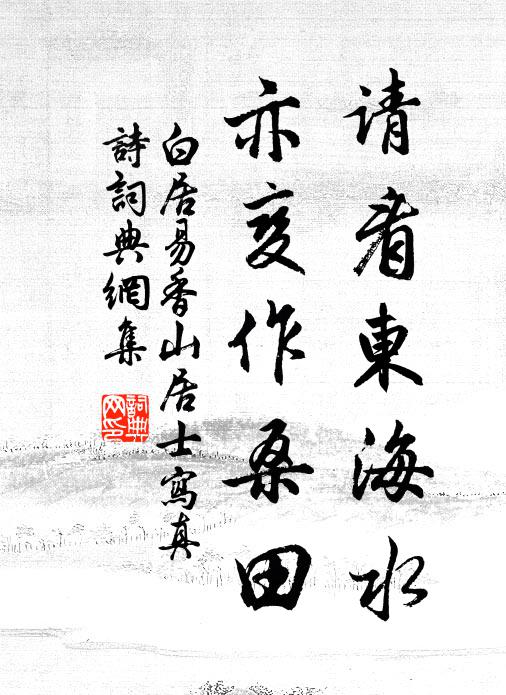 请看東海水
亦变作桑田
白居易香山居士寫真
詩詞典網集
詞典網印